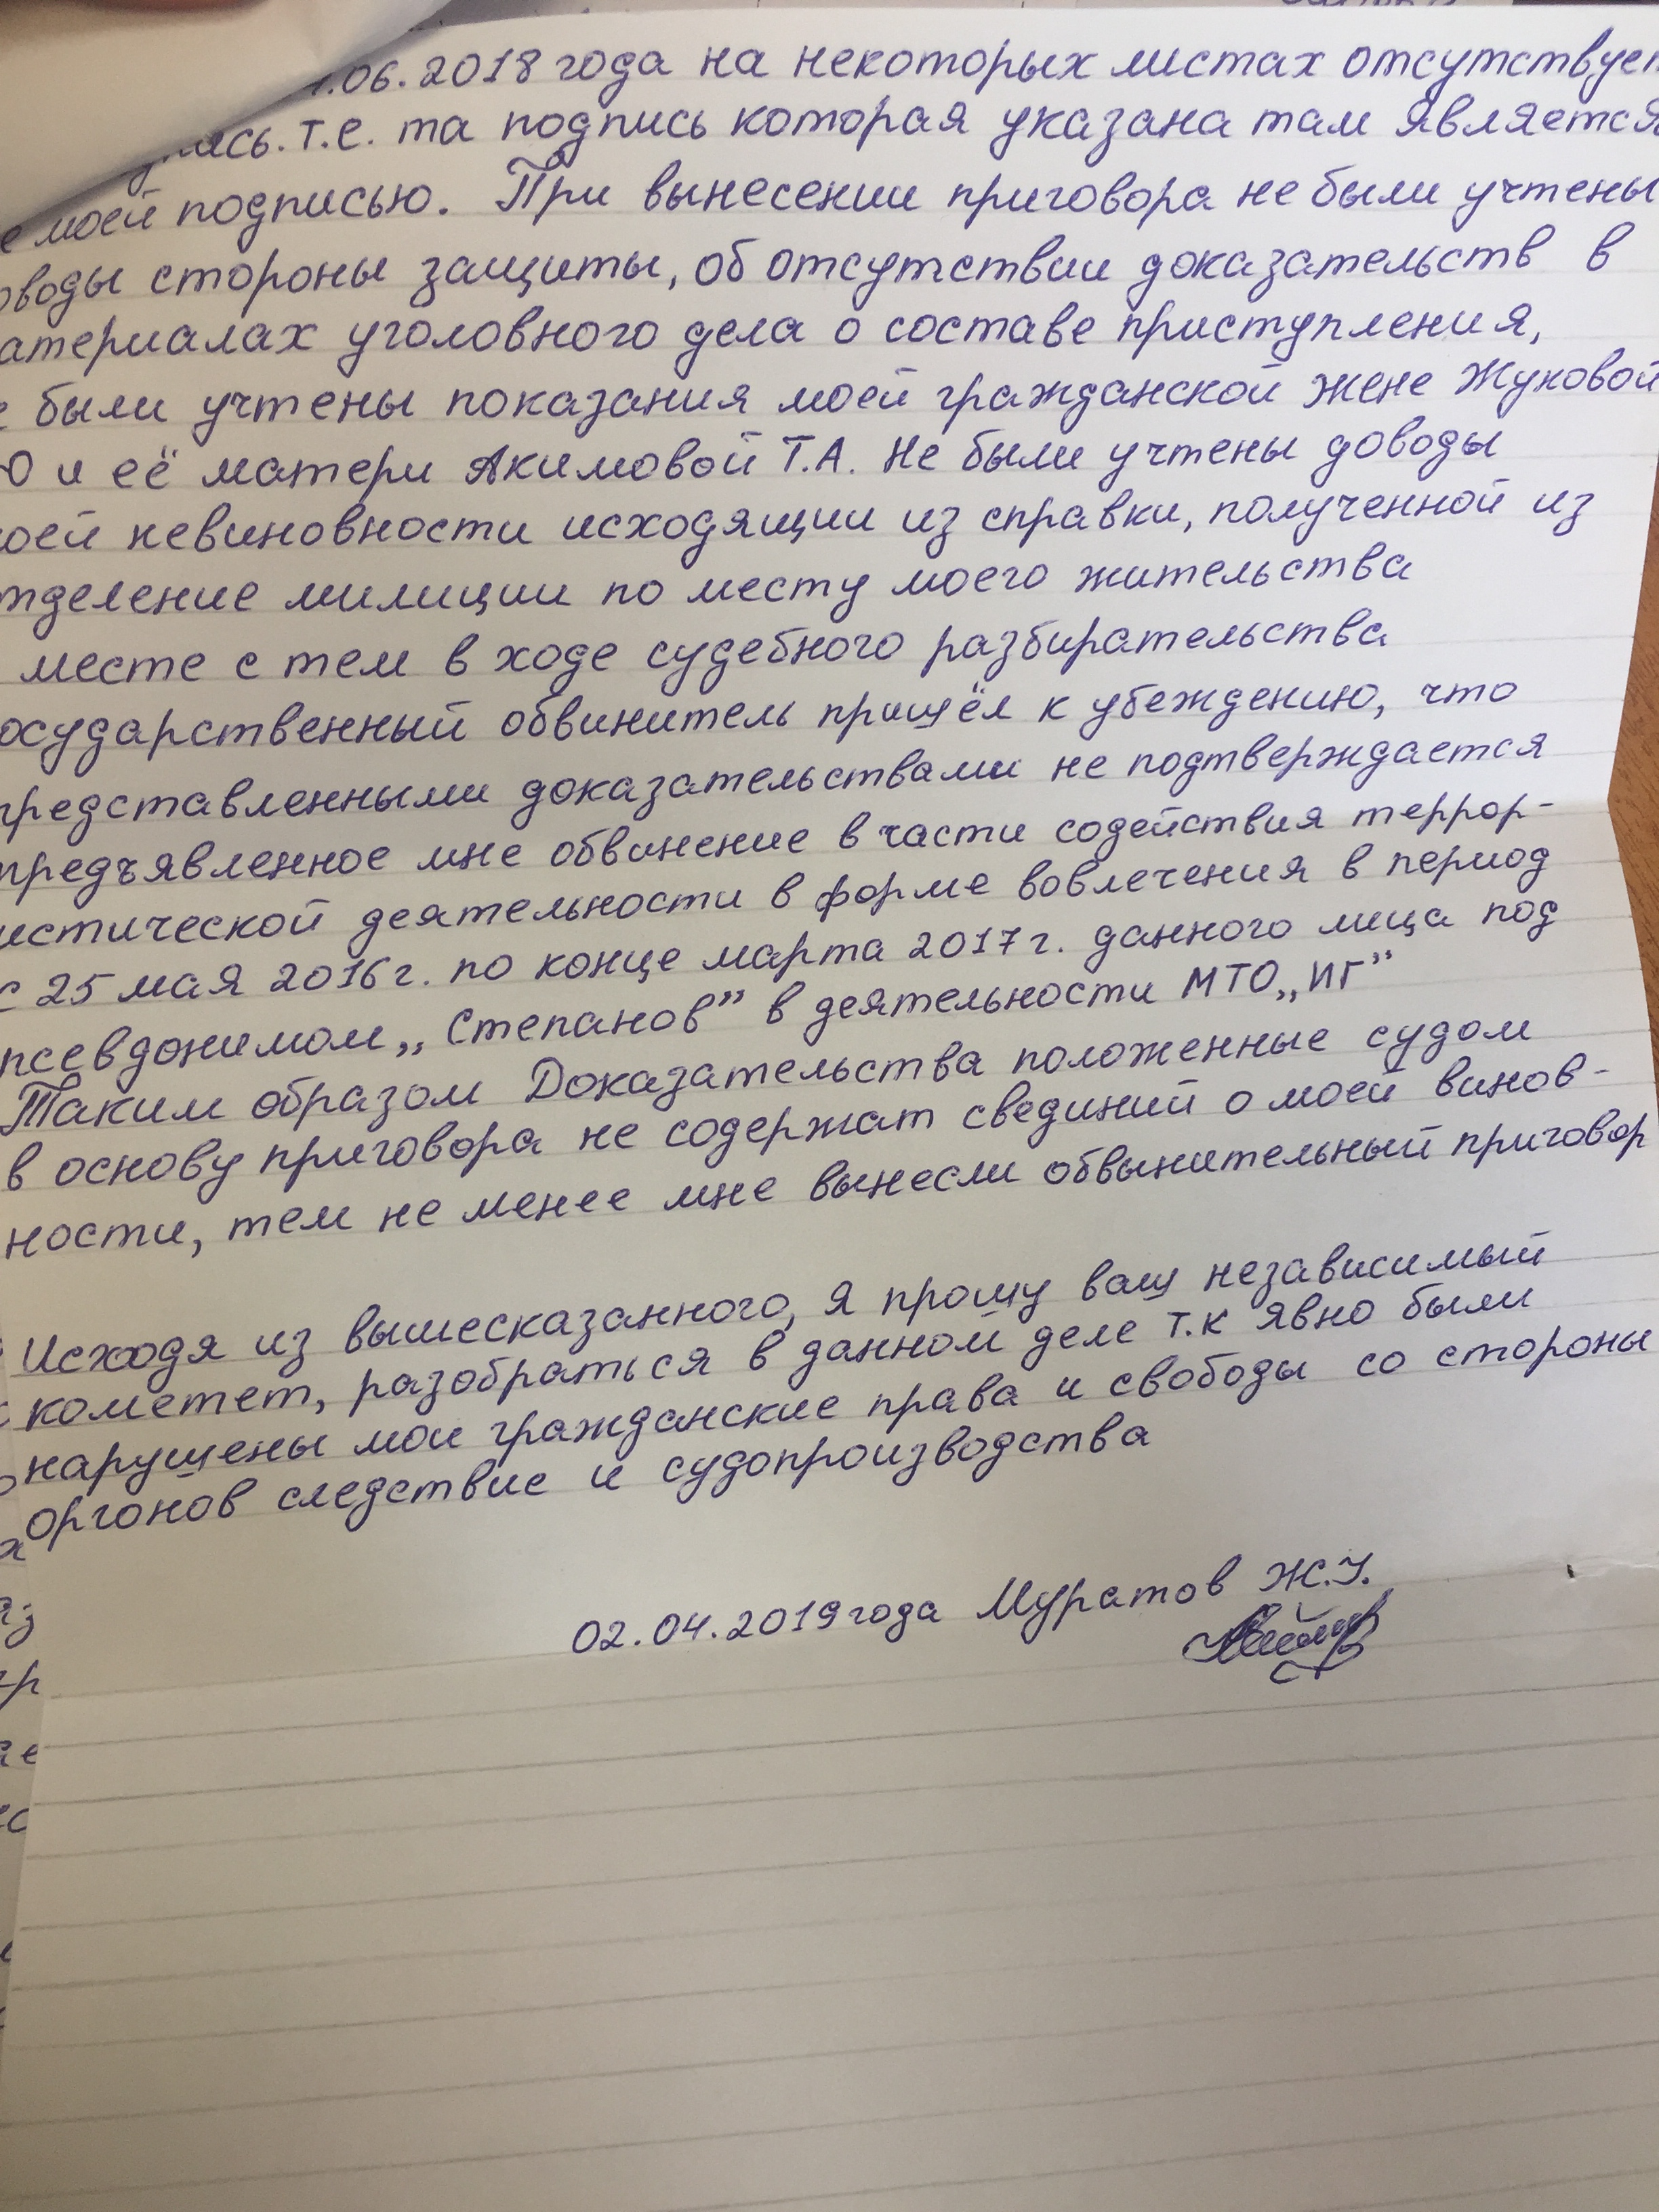 .06.2018 года на некоторых листах отсутствует
т.е. та подпись которая указана там является
моей подписью. При вынесении приговора не были учтены
оводы стороны защиты, об отсутствии доказательств в
атериалах уголовного дела о составе приступления,
е были учтены показания моей гражданской жене Жуковой
Ю и её матери Акимовой Т.А. Не были учтены доводы
оей невиновности исходящии из справки, полученной из
тделение милиции по месту моего жительства
месте с тем в ходе судебного разбирательства
осударственный обвинитель пришёл к убеждению, что
представленными доказательствами не подтверждается
предъявленное мне обвинение в части содействия террор-
истической деятельности в форме вовлечения в период
с 25 мая 2016 г. по конце марта 2017 г. данного лица под
псевдонимом „Степанов” в деятельности МТО „ИГ”
Таким образом Доказательства положенные судом
в основу приговора не содержат свединий о моей винов-
ности, тем не менее мне вынесли обвынительный приговор
Исходя из вышесказанного, я прошу ваш независимый
кометет, разобраться в данном деле т.к явно были
нарушены мои гражданские права и свободы со стороны
оргонов следствие и судопроизводства
02.04.2019 года Муратов Ж.У.